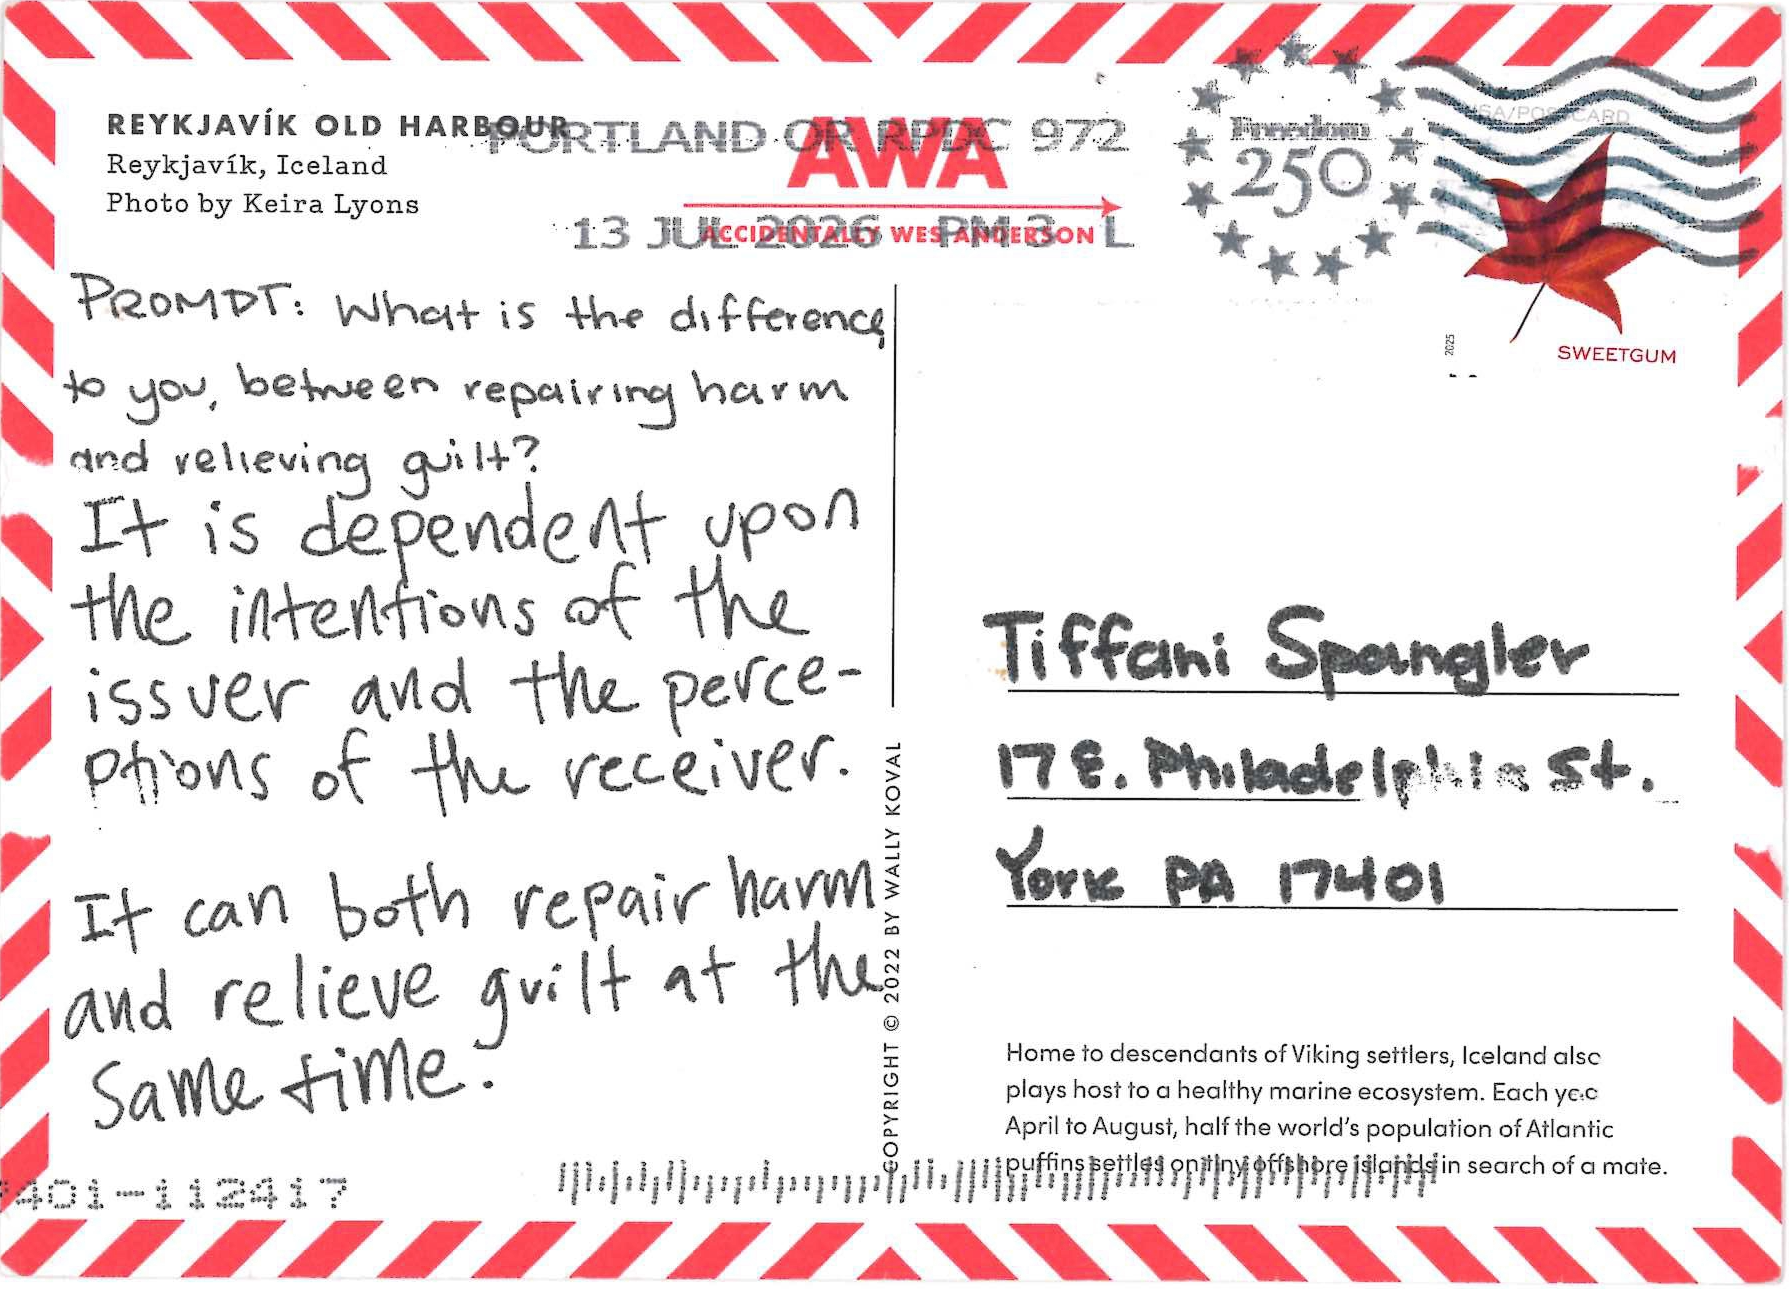 REYKJAVÍK OLD HARBOUR
Reykjavík, Iceland
Photo by Keira Lyons
PORTLAND OR RPDC 972
13 JUL 2026 PM 3 L
AWA
ACCIDENTALLY WES ANDERSON
Freedom
250
USA/POSTCARD
2025
SWEETGUM
PROMPT: What is the difference,
to you, between repairing harm
and relieving guilt?
It is dependent upon
the intentions of the
issuer and the perce-
ptions of the receiver.
It can both repair harm
and relieve guilt at the
same time.
COPYRIGHT © 2022 BY WALLY KOVAL
Tiffani Spangler
17 E. Philadelphia St.
York PA 17401
Home to descendants of Viking settlers, Iceland also
plays host to a healthy marine ecosystem. Each
April to August, half the world's population of Atlantic
puffins settles on tiny offshore islands in search of a mate.
401-112417